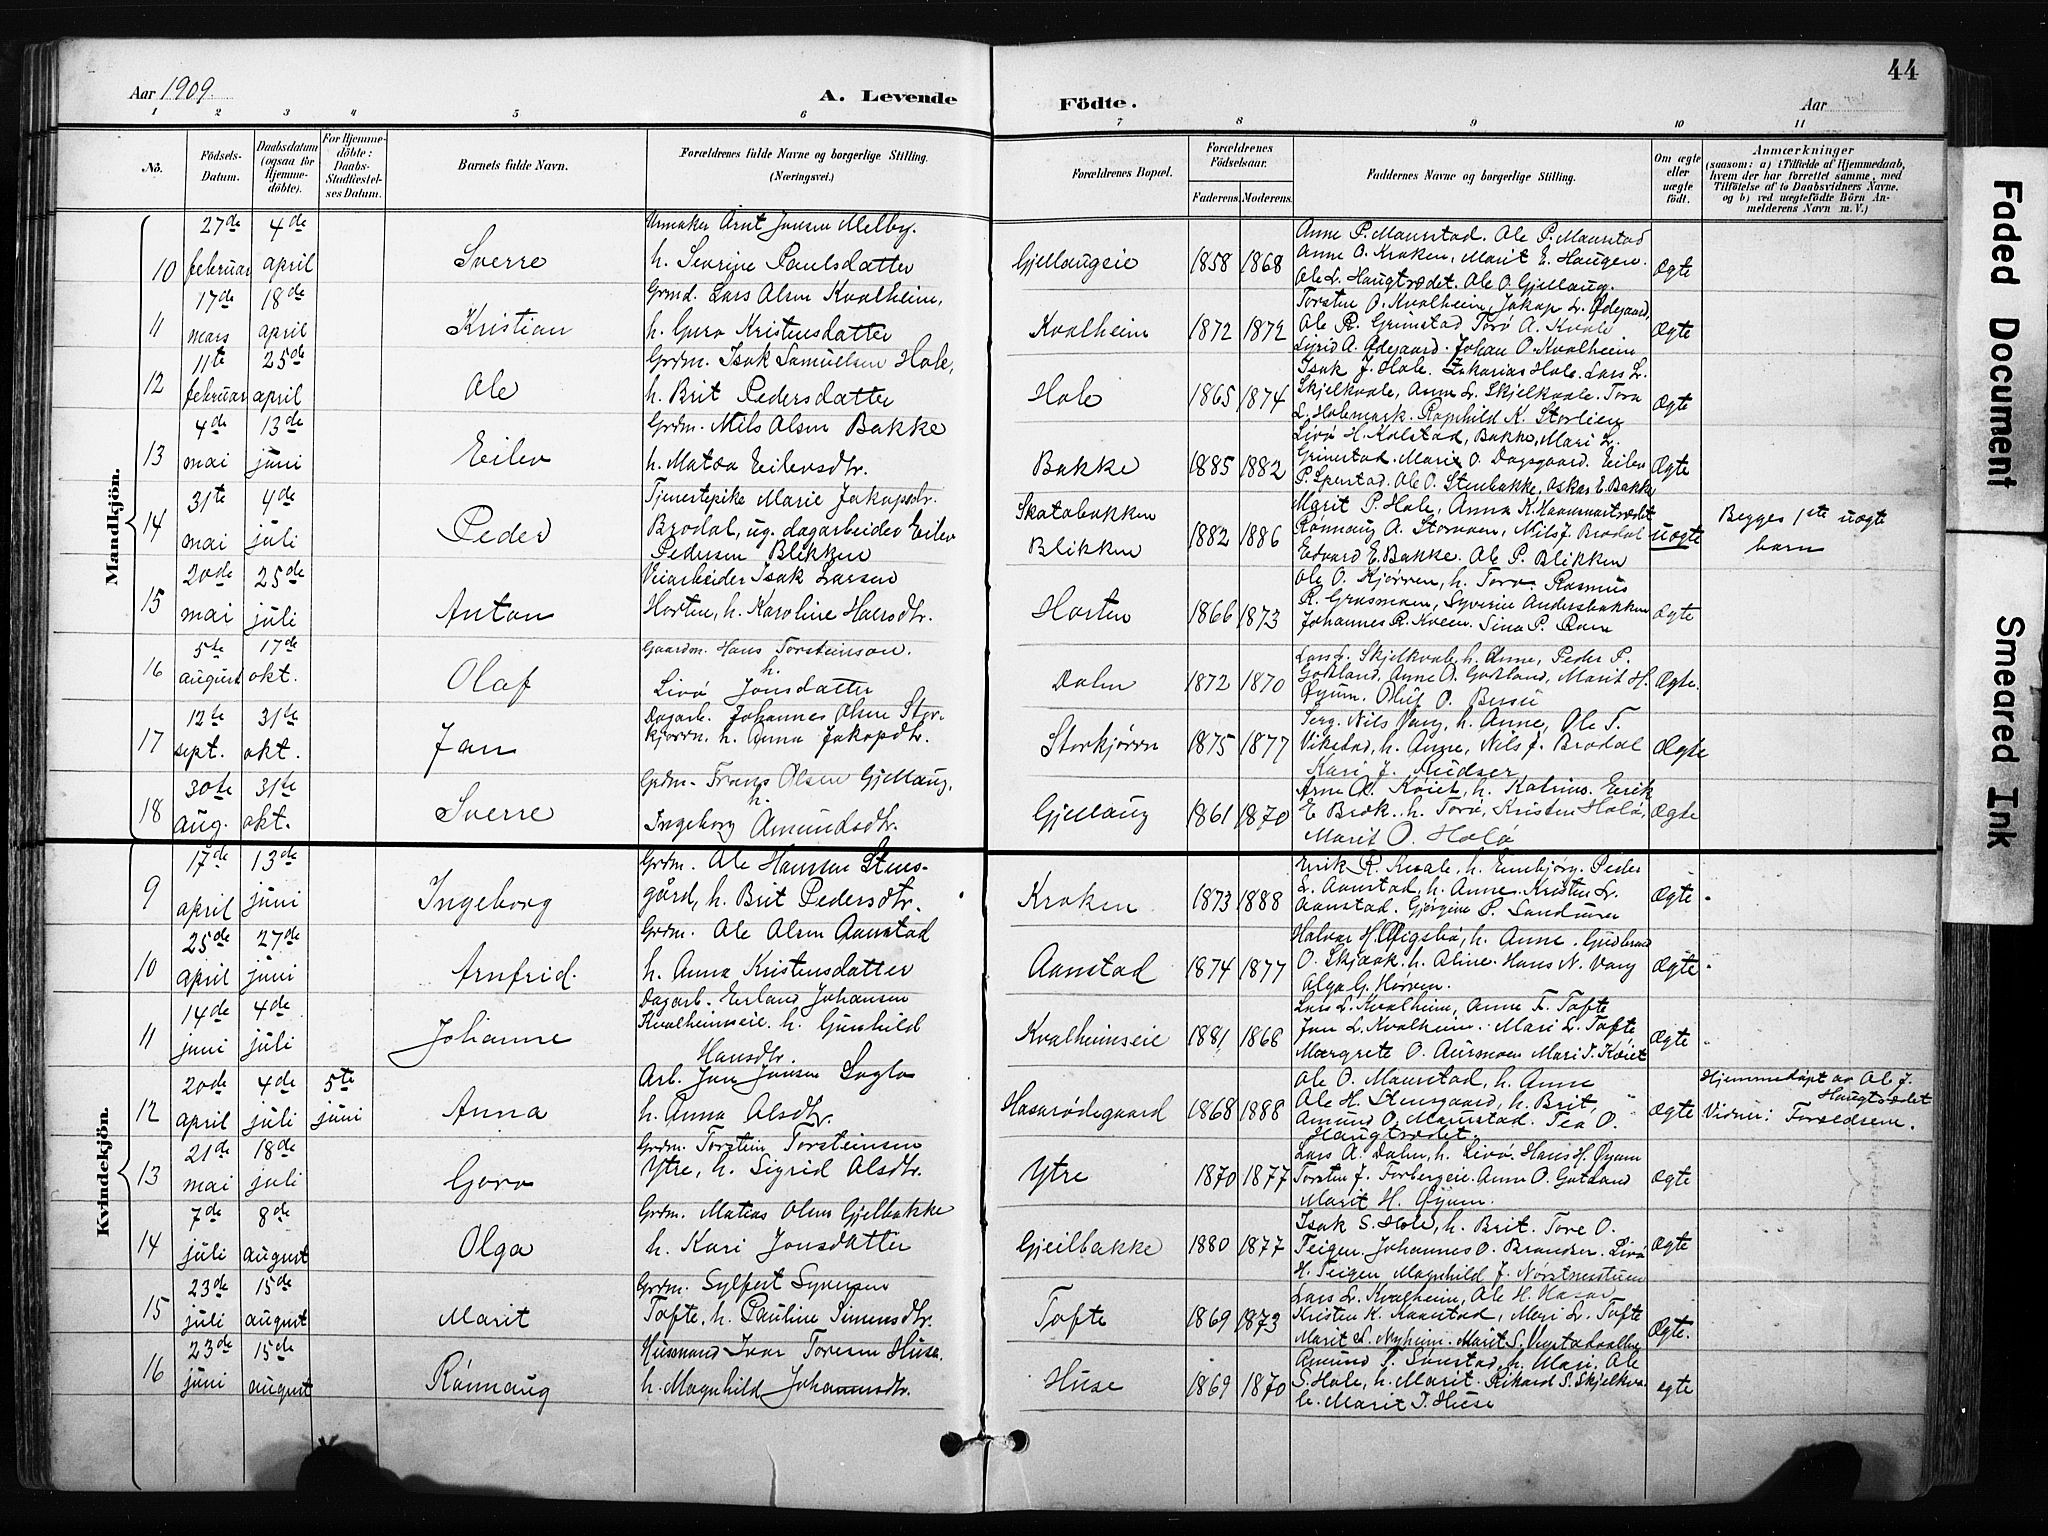 44
Aar 1909.
A. Levende Födte.
Aar
1 2 3 4 5 6 7 8 9 10 11
No.
Födsels-Datum.
Daabsdatum (ogsaa for Hjemme-döbte).
For Hjemme-döbte: Daabs-Stadfæstel-ses Datum.
Barnets fulde Navn.
Forældrenes fulde Navne og borgerlige Stilling. (Næringsvei.)
Forældrenes Bopæl.
Forældrenes Födselsaar.
Faderens. Moderens.
Faddernes Navne og borgerlige Stilling.
Om ægte eller uægte födt.
Anmærkninger
(saasom: a) i Tilfælde af Hjemmedaab, hvem der har forrettet samme, med Tilföielse af to Daabsvidners Navne, og b) ved uægtefödte Börn An-melderens Navn m. V.)
Mandkjön.
10 27de februar 4de april Sverre
Urmaker Arnt Jonsen Melby.
h. Sevrine Paulsdatter
Gjellaugeie 1858 1868
Anne P. Maurstad. Ole P. Maurstad
Anne O. Kroken, Marit E. Haugen.
Ole L. Haugtrædet. Ole O. Gjellaug.
Ægte
11 17de mars 18de april Kristian
Grmd. Lars Olsen Kvalheim,
h. Guro Kristensdatter
Kvalheim 1872 1872
Torsten O. Kvalheim, Jakop L. Ødegaard,
Ole R. Grimstad Torø A. Kvale
Syrid A. Ødegaard. Johan O. Kvalheim
Ægte
12 11te februar 25de april Ole
Grdm. Isak Samuelsen Hole,
h. Brit Pedersdatter
Hole 1865 1874
Isak J. Hole. Zakarias Hole. Lars L.
Skjelkvale, Anne L. Skjelkvale. Tora
L. Holemark. Ragnhild K. Storlien
Ægte
13 4de mai 13de juni Eilev
Grdm. Nils Olsen Bakke
h. Matea Eilevsdtr.
Bakke 1885 1882
Livø H. Kolstad, Bakke, Mari L.
Grimstad. Marie O. Dagsgaard. Eilev
P. Sperstad. Ole O. Stenbakke, Oskar E. Bakke
Ægte
14 31te mai 4de juli Peder
Tjenestepike Marie Jakopsdr.
Brodal, ug. dagarbeider Eilev
Pedersen Blikken
Skatabakken
Blikken
1882 1886
Marit P. Hole, Anna K. Hammartrædet
Rønnaug A. Stormoen, Nils J. Brodal
Edvard E. Bakke. Ole P. Blikken
uægte
Begges 1ste uægte
barn
15 20de mai 25de juli Anton
Veiarbeider Isak Larsen
Horten, h. Karoline Halvsdtr.
Horten 1866 1873
Ole O. Kjørren, h. Tora. Rasmus
R. Grasmoen, Syverine Andersbakken
Johannes R. Kveen. Sina P. Ramm
Ægte
16 5te august 17de okt. Olaf
Gaardm. Hans Torsteinson.
h.
Livø Jonsdatter
Dalen 1872 1870
Lars L. Skjelkvale, h. Anne, Peder P.
Gotland, Anne O. Gotland, Marit H.
Øyum. Oluf O. Bersu
Ægte.
17 12te sept. 31te okt. Jan
Dagarb. Johannes Olsen Stor-
kjørren. h. Anna Jakopdtr.
Storkjørrn 1875 1877
Serg. Nils Vang, h. Anne, Ole T.
Vikstad, h. Anne, Nils J. Brodal
Kari J. Rudser
Ægte
18 30te aug. 31te okt. Sverre
Grdm. Frans Olsen Gjellaug,
h.
Ingeborg Amundsdtr.
Gjellaug 1861 1870
Arne A. Køiet, h. Katrine. Eirik
E. Bræk. h. Torø, Kristen Holø,
Marit O. Holø
Ægte
Kvindekjön.
9 17de april 13de juni Ingeborg
Grdm. Ole Hansen Stens-
gård, h. Brit Pedersdtr.
Kroken 1873 1888
Erik R. Kvale, h. Embjørg. Peder
L. Aanstad, h. Anne. Kristen L.
Aanstad. Gjørgine P. Sandum
Ægte
10 25de april 27de juni Arnfrid.
Grdm. Ole Olsen Aanstad
h. Anna Kristensdatter
Aanstad 1874 1877
Halvar H. Øigsbø, h. Anne. Gudbrand
O. Skjaak. h. Oline. Hans N. Vang
Olga G. Horven.
Ægte
11 14de juni 4de juli Johanne
Dagarb. Erland Johansen
Kvalheimseie. h. Gunhild
Hansdtr.
Kvalheimseie 1881 1868
Lars L. Kvalheim, Anne F. Tofte
Jon L. Kvalheim. Mari L. Tofte
Margrete O. Aurmoen Mari T. Køiet
Ægte
12 20de april 4de juli 5te juni Anna
Arb. Jon Jonsen Sagla
h. Anna Olsdtr.
Hasarødegaard 1868 1888
Ole O. Maurstad, h. Anne
Ole H. Stensgaard, h. Brit,
Amund O. Maurstad. Tea O.
Haugtrædet.
Ægte
Hjemmedøpt av Ol. J.
Haugtrædet
Vidner: Forældrene.
13 21de mai 18de juli Goro
Grdm. Torstein Torsteinsen
Ytre, h. Sigrid Olsdtr.
Ytre 1870 1877
Lars A. Dalen, h. Livø. Hans H. Øyum
Torsten J. Forbergeie. Anne O. Gotland
Marit H. Øyum.
Ægte
14 7de juli 8de august Olga
Grdm. Matias Olsen Gjelbakke
h. Kari Jonsdatter
Gjeilbakke 1880 1877
Isak S. Hole, h. Brit. Tore O.
Teigen. Johannes O. Brandser. Livø
H. Teigen Magnhild J. Nørstnesstuen
Ægte
15 23de juli 15de august Marit
Grdm. Sylfest Syversen
Tofte, h. Pauline Simensdtr.
Tofte 1869 1873
Lars L. Kvalheim, Ole H. Hasar
Kristen K. Aanstad, Mari L. Tofte
Marit S. Nyheim. Marit S.
Ægte.
16 23de juni 15de august Rønnaug
Husmand Ivar Toresen Huse.
h. Magnhild Johannsdtr.
Huse 1869 1870
Amund P. Sonstad, h. Mari. Ole
S. Hole, h. Marit. Rikard S. Skjelkva-
le. Marit I. Huse
ægte
Faded Document
Smeared Ink